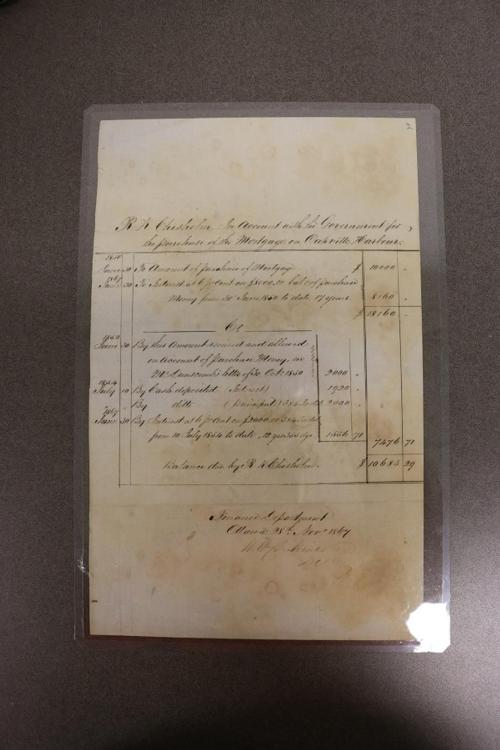 2
R K Chisholm In Account with the Government for
the purchase of the Mortgage on Oakville Harbour.
1850
June 30 To Amount of purchase of Mortgage $ 10000 -
1867
June 30 To Interest at 6 p Cent on $8000.00 bal of purchase
Money from 30 June 1850 to date, 17 years 8160 -
$ 18160 -
Cr
1850
June 30 By this Amount and allowed
on Account of purchase Money, 
letter of Octr 1850 2000 -
1864
July 10 By Cash deposited (Interest) 1920 -
By ditto 2000 -
June 30 By Interest at 6 p Cent on
from 10 July 1864 to date, 1556 71
7476 71
Balance due by R K Chisholm $ 10683 29
Finance Department
Ottawa 28th Novr 1867